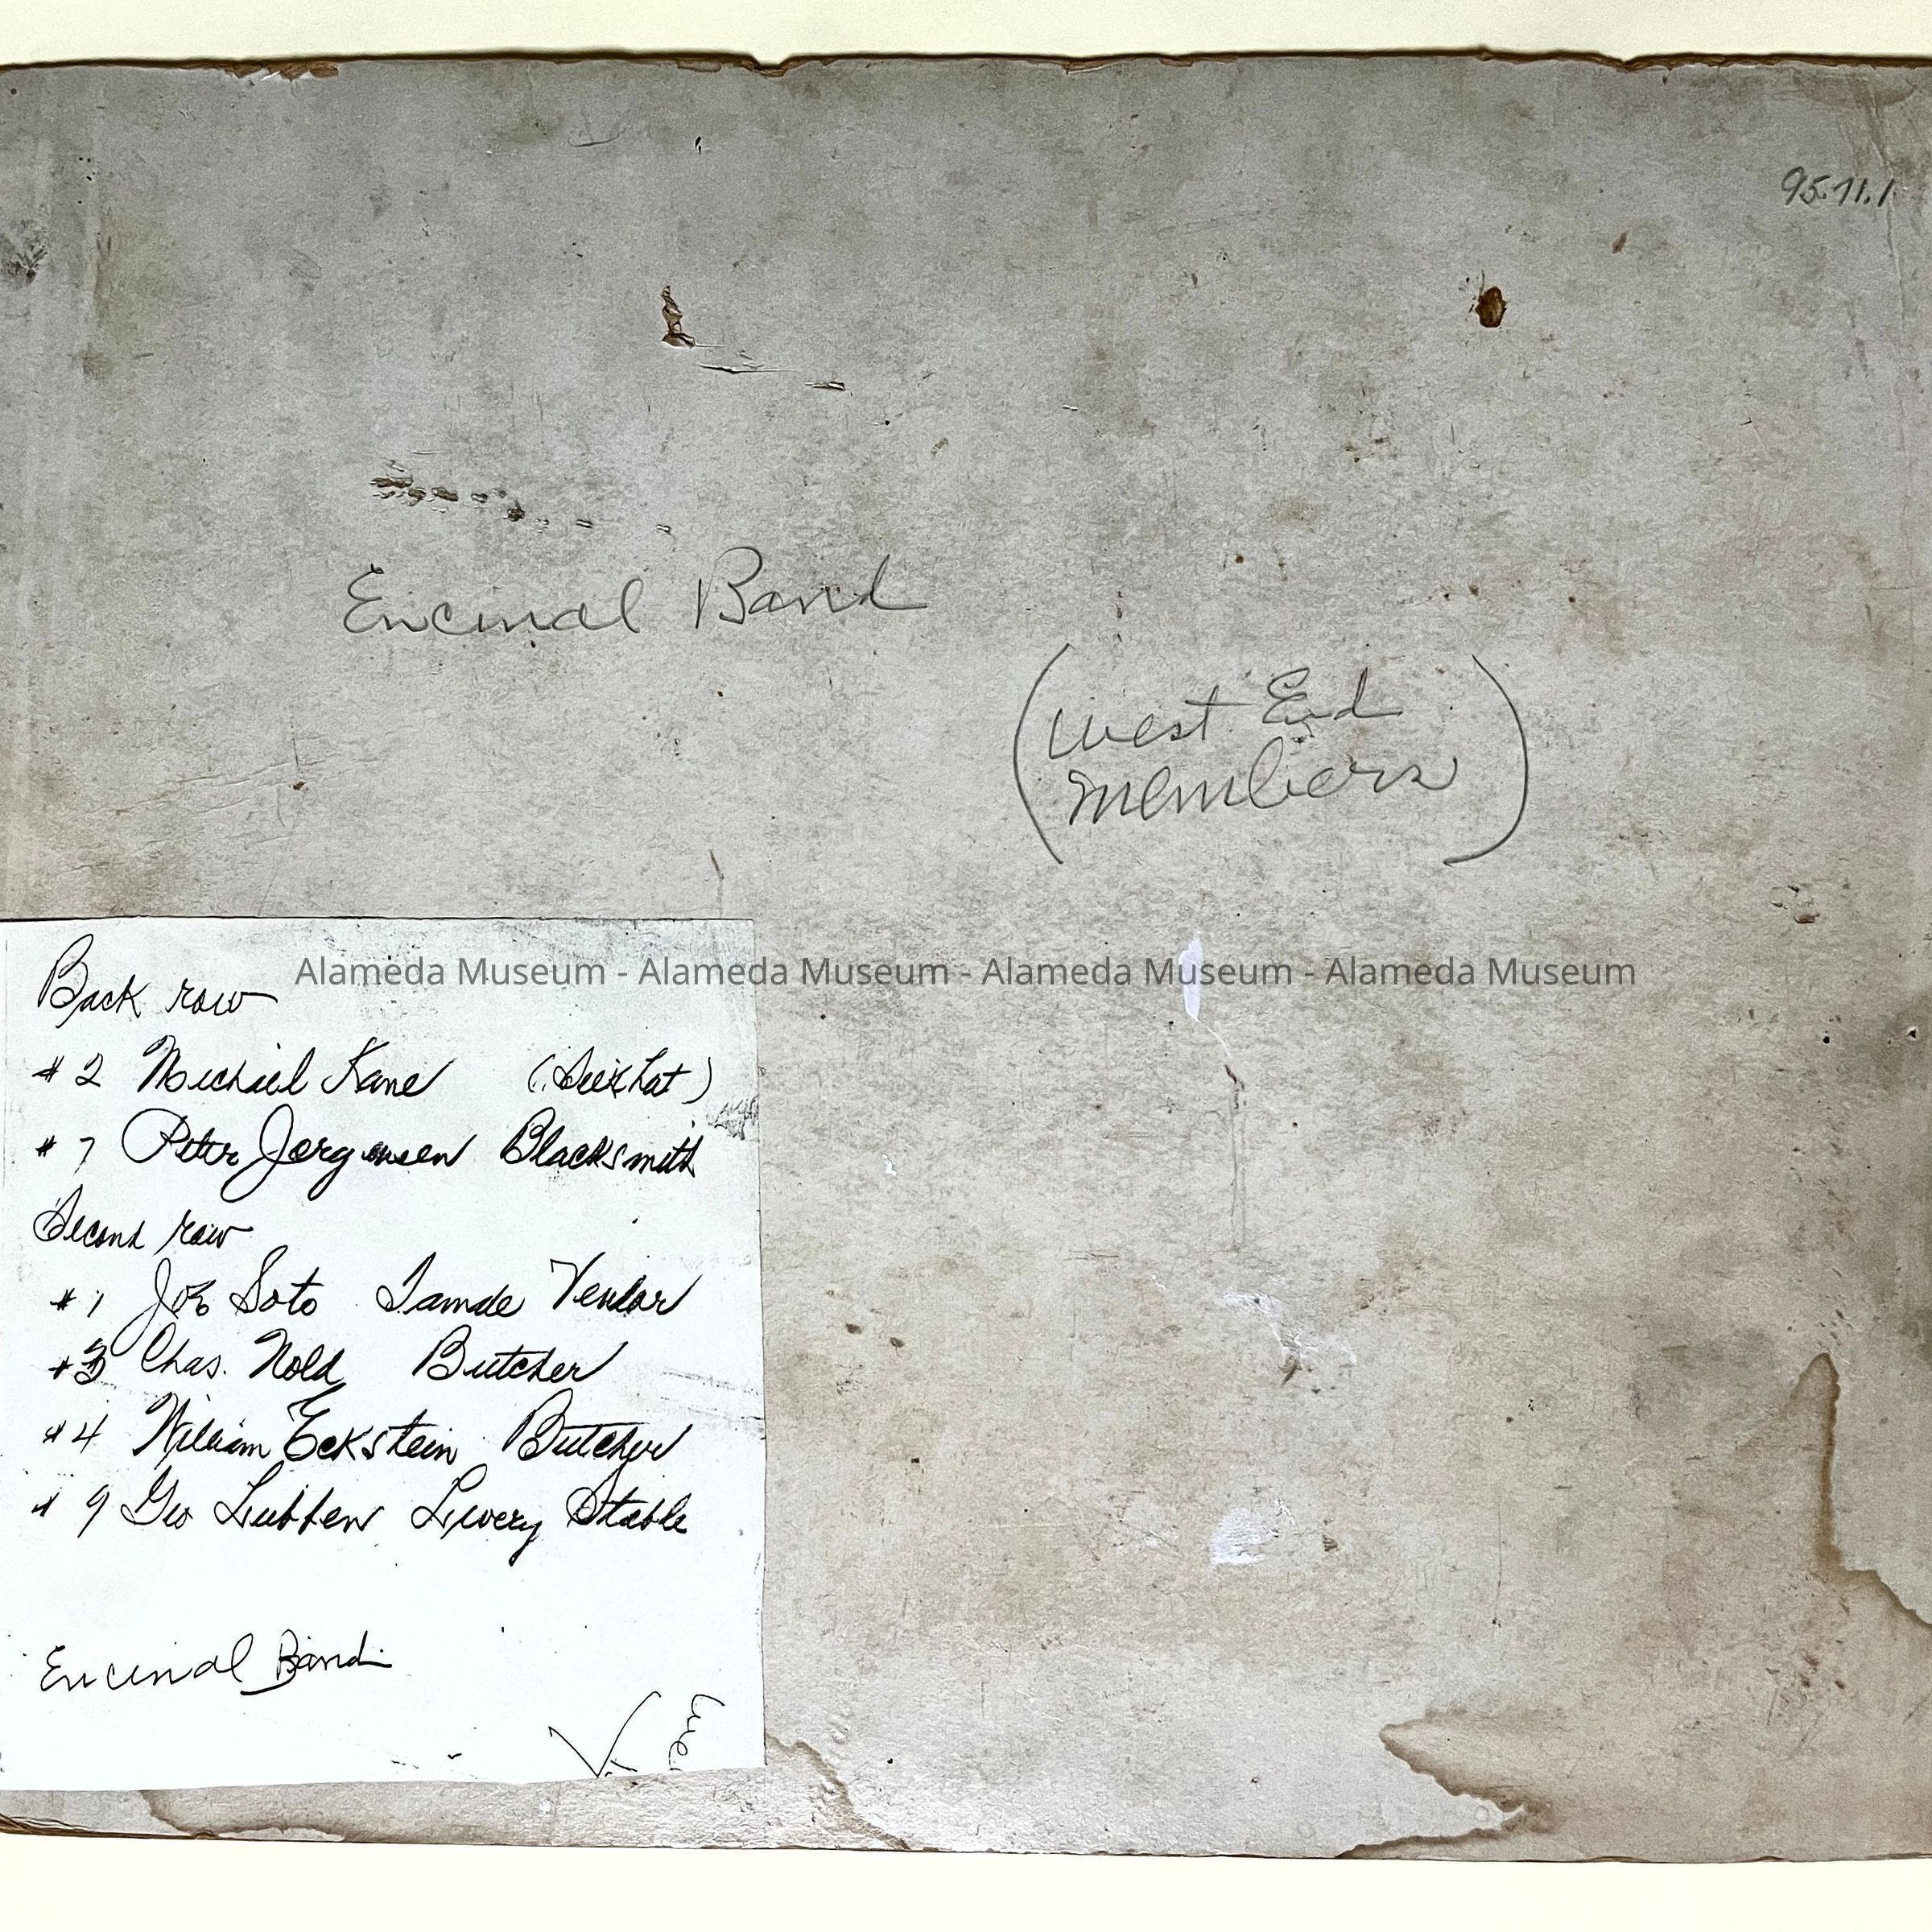 95.11.1
Encinal Band
(West End
Members)
Alameda Museum - Alameda Museum - Alameda Museum - Alameda Museum
Back row
#2 Michael Kane
#7 Peter Jorgensen Blacksmith
Second row
#1 Joe Soto Tamale Vendor
#3 Chas. Nold Butcher
#4 William Eckstein Butcher
#9 Geo Lubben Livery Stable
Encinal Band